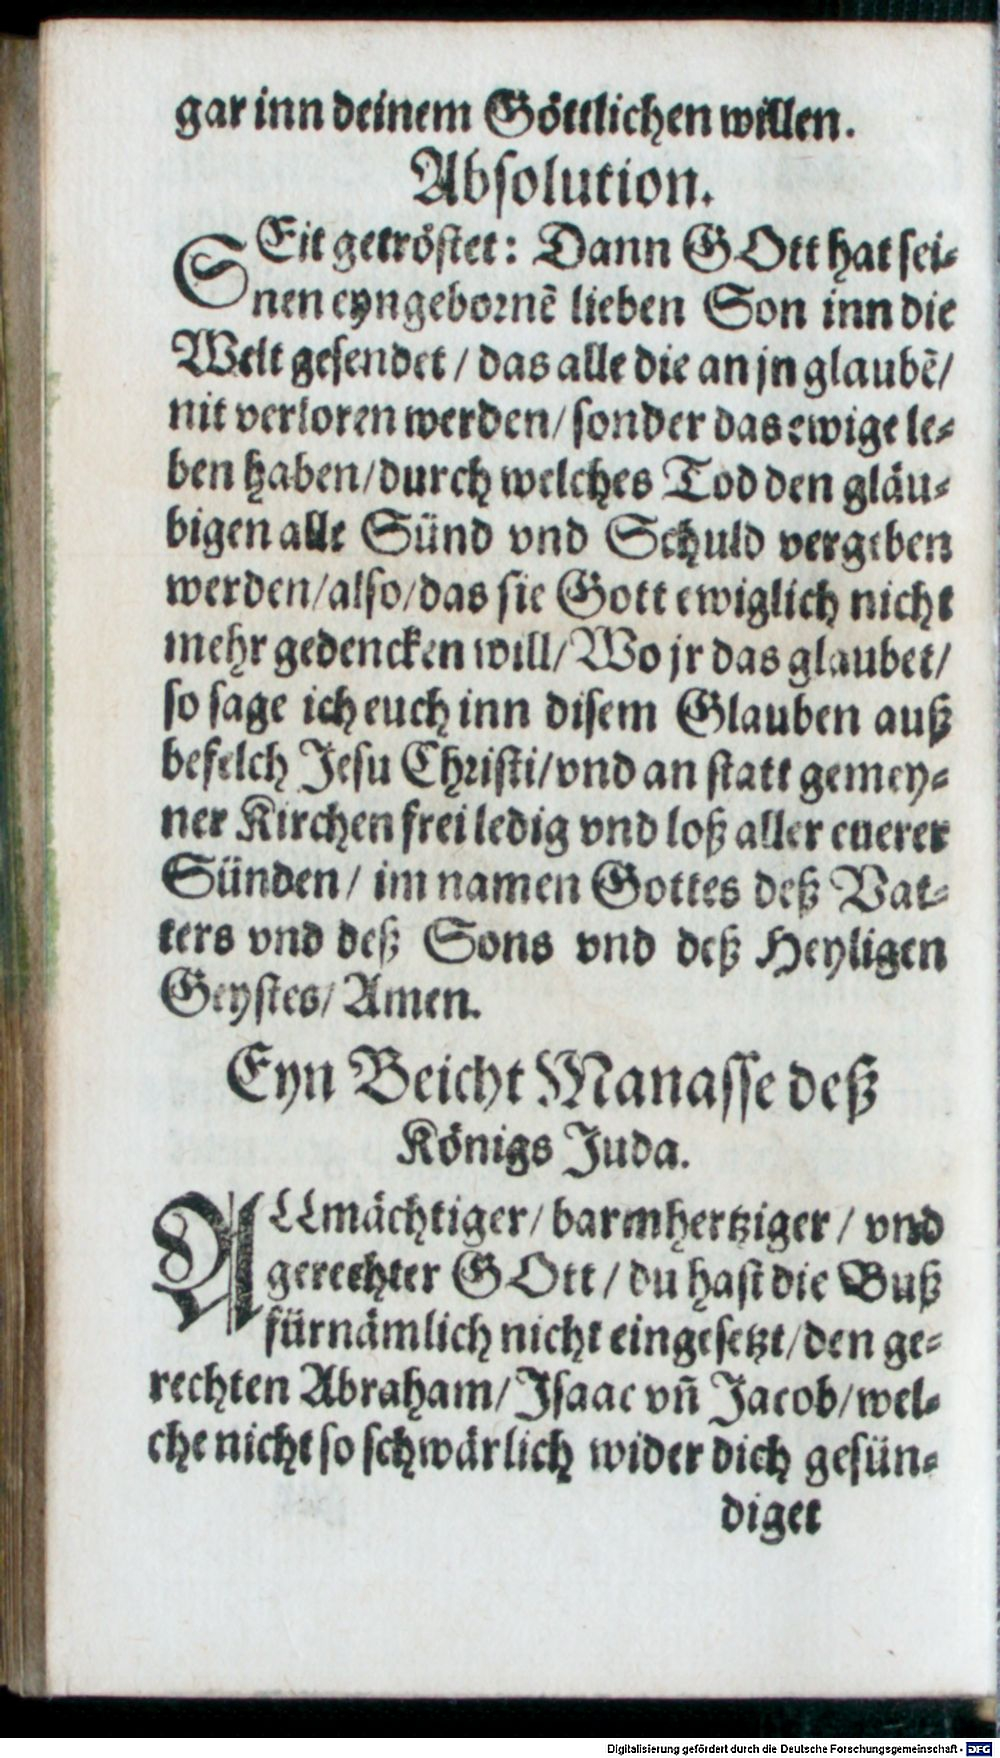 gar inn deinem Göttlichen willen.
Absolution.
SEit getröstet: Dann GOtt hat sei⸗
nen eyngebornẽ lieben Son inn die
Welt gesendet / das alle die an jn glaubẽ/
nit verloren werden/ sonder das ewige le⸗
ben haben/durch welches Tod den gläu⸗
bigen alle Sünd vnd Schuld vergeben
werden/also/das sie Gott ewiglich nicht
mehr gedencken will/ Wo jr das glaubet/
so sage ich euch inn disem Glauben auß
befelch Jesu Christi/vnd an statt gemey⸗
ner Kirchen frei ledig vnd loß aller euerer
Sünden/ im namen Gottes deß Vat⸗
ters vnd deß Sons vnd deß Heyligen
Geystes/ Amen.
Eyn Beicht Manasse deß
Königs Juda.
ALLmächtiger/ barmhertziger / vnd
gerechter GOtt / du hast die Buß
fürnämlich nicht eingesetzt/den ge⸗
rechten Abraham/ Isaac vñ Jacob/wel⸗
che nicht so schwärlich wider dich gesün⸗
diget
Digitalisierung gefördert durch die Deutsche Forschungsgemeinschaft - DFG